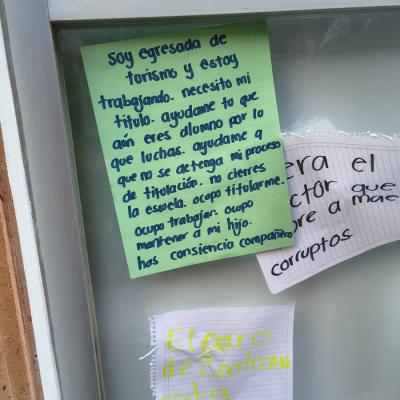 Soy egresada de
turismo y estoy
trabajando. necesito mi
titulo. ayudame tu que
aún eres alumno por lo
que luchas. ayudame a
que no se detenga mi proceso
de titulación. no cierres
la escuela. ocupo titularme.
ocupo trabajar. ocupo
mantener a mi hijo.
has consiencia compañero
era el
ctor que
bre a mae
corruptos.
El paro
de Zootecnia